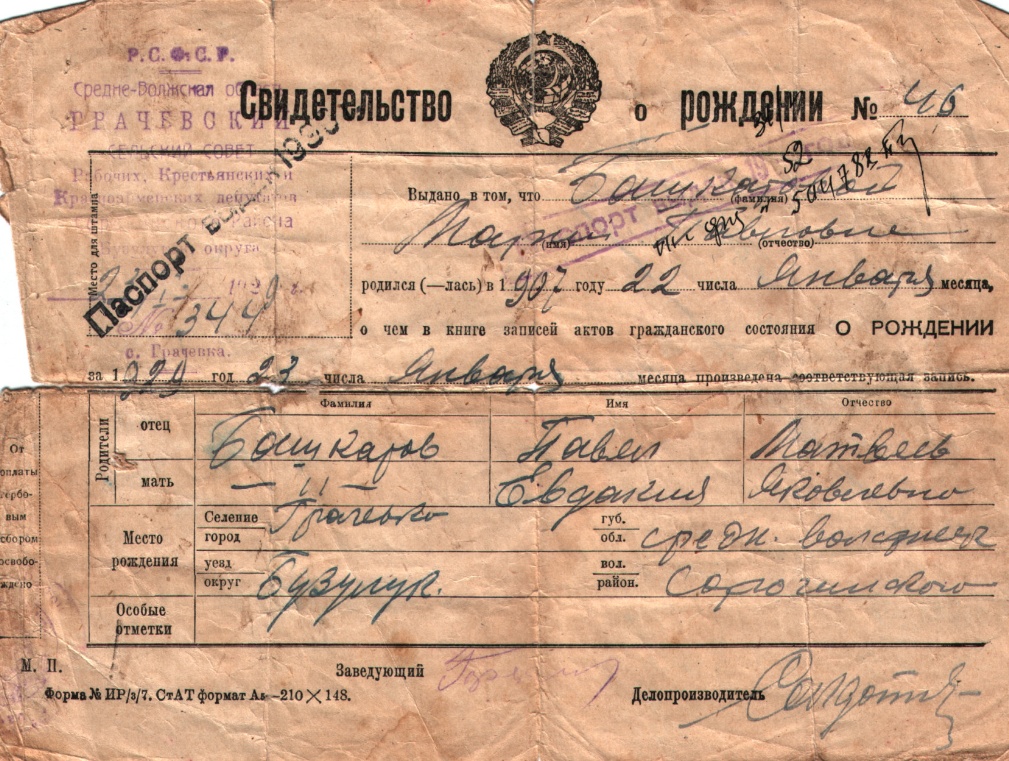 Р.С.Ф.С.Р.
Средне-Волжская
ГРАЧЕВСКИЙ
СЕЛЬСКИЙ СОВЕТ
Рабочих, Крестьянских и
Красноармейских депутатов
округа
192 г.
№ 344
с. Грачевка.
Место для штампа
Паспорт выдан 193
Свидетельство о рождении № 46
Выдано в том, что Башкатовой
(фамилия)
Марии Павловне
(имя) (отчество)
Паспорт
504782
родился (—лась) в 1907 году 22 числа Января месяца,
о чем в книге записей актов гражданского состояния О РОЖДЕНИИ
за 1929 год 23 числа Января месяца произведена соответствующая запись.
Фамилия Имя Отчество
Родители
отец Башкатов Павел Матвеев
мать —〃 — Евдакия Яковлевно
Место рождения
Селение город Грачевко губ. обл. средн. волжск
уезд округ Бузулук. вол. район. Сорочинского
Особые отметки
От
оплаты
гербо-
вым
сбором
освобо-
ждено
М. П. Заведующий
Форма № ИР/з/7. СтАТ формат А₅ —210×148. Делопроизводитель